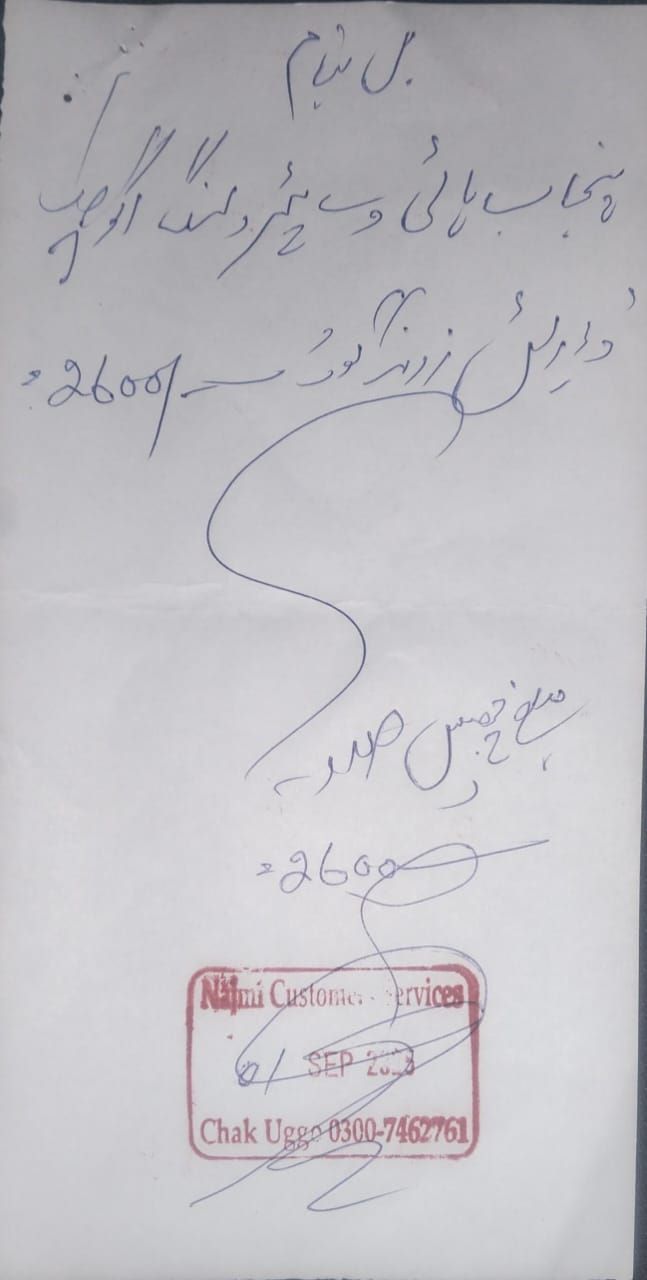 بل بنام
پنجاب ہائی وے پٹرولنگ اگوچک
وائرلیس
2600/=
مبلغ چھبیس صد روپے
2600=
Najmi Customer Services
01 SEP
Chak Uggo 0300-7462761